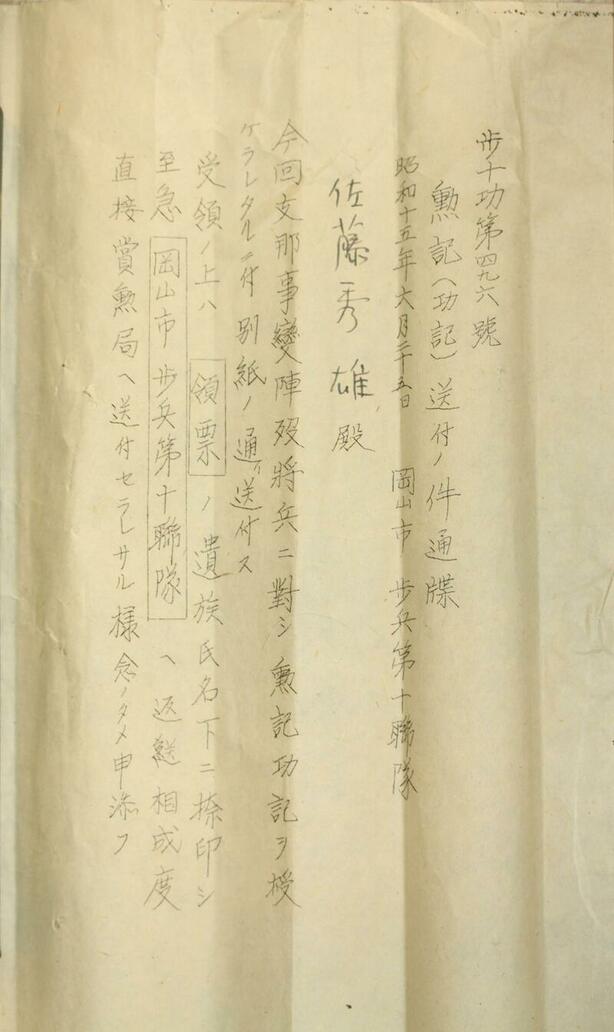 歩十功第四九六號
勲記(功記)送付ノ件通牒
昭和十五年六月二十五日 岡山市 歩兵第十聯隊
佐藤秀雄殿
今回支那事變陣歿將兵ニ對シ勲記功記ヲ授
ケラレタルニ付別紙ノ通リ送付ス
受領ノ上ハ領票ノ遺族氏名下ニ捺印シ
至急岡山市歩兵第十聯隊ヘ返送相成度
直接賞勲局ヘ送付セラレサル様念ノタメ申添フ